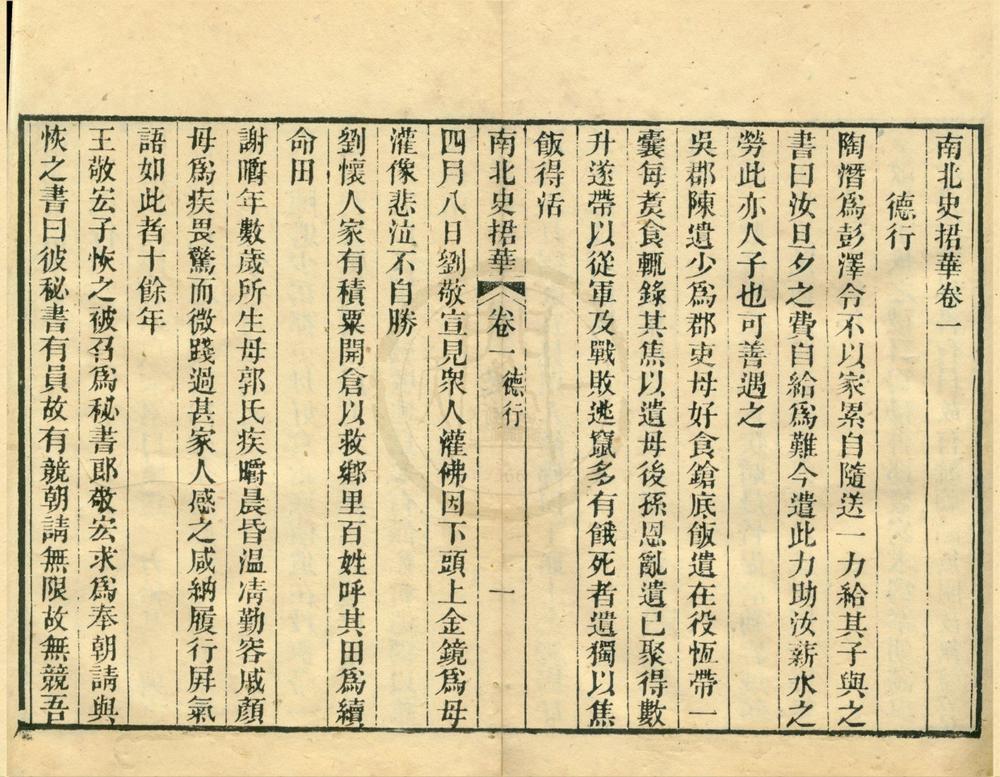 南北史捃華卷一
德行
陶潛爲彭澤令不以家累自隨送一力給其子與之
書曰汝旦夕之費自給爲難今遣此力助汝薪水之
勞此亦人子也可善遇之
吳郡陳遺少爲郡吏母好食鎗底飯遺在役恆帶一
囊每煑食輒錄其焦以遺母後孫恩亂遺已聚得數
升遂帶以從軍及戰敗逃竄多有餓死者遺獨以焦
飯得活
南北史捃華 卷一 德行 一
四月八日劉敬宣見衆人灌佛因下頭上金鏡爲母
灌像悲泣不自勝
劉懷人家有積粟開倉以救鄉里百姓呼其田爲續
命田
謝㬭年數歲所生母郭氏疾㬭晨昏温凊勤容戚顏
母爲疾畏驚而微踐過甚家人感之咸納履行屏氣
語如此者十餘年
王敬宏子恢之被召爲秘書郎敬宏求爲奉朝請與
恢之書曰彼秘書有員故有競朝請無限故無競吾